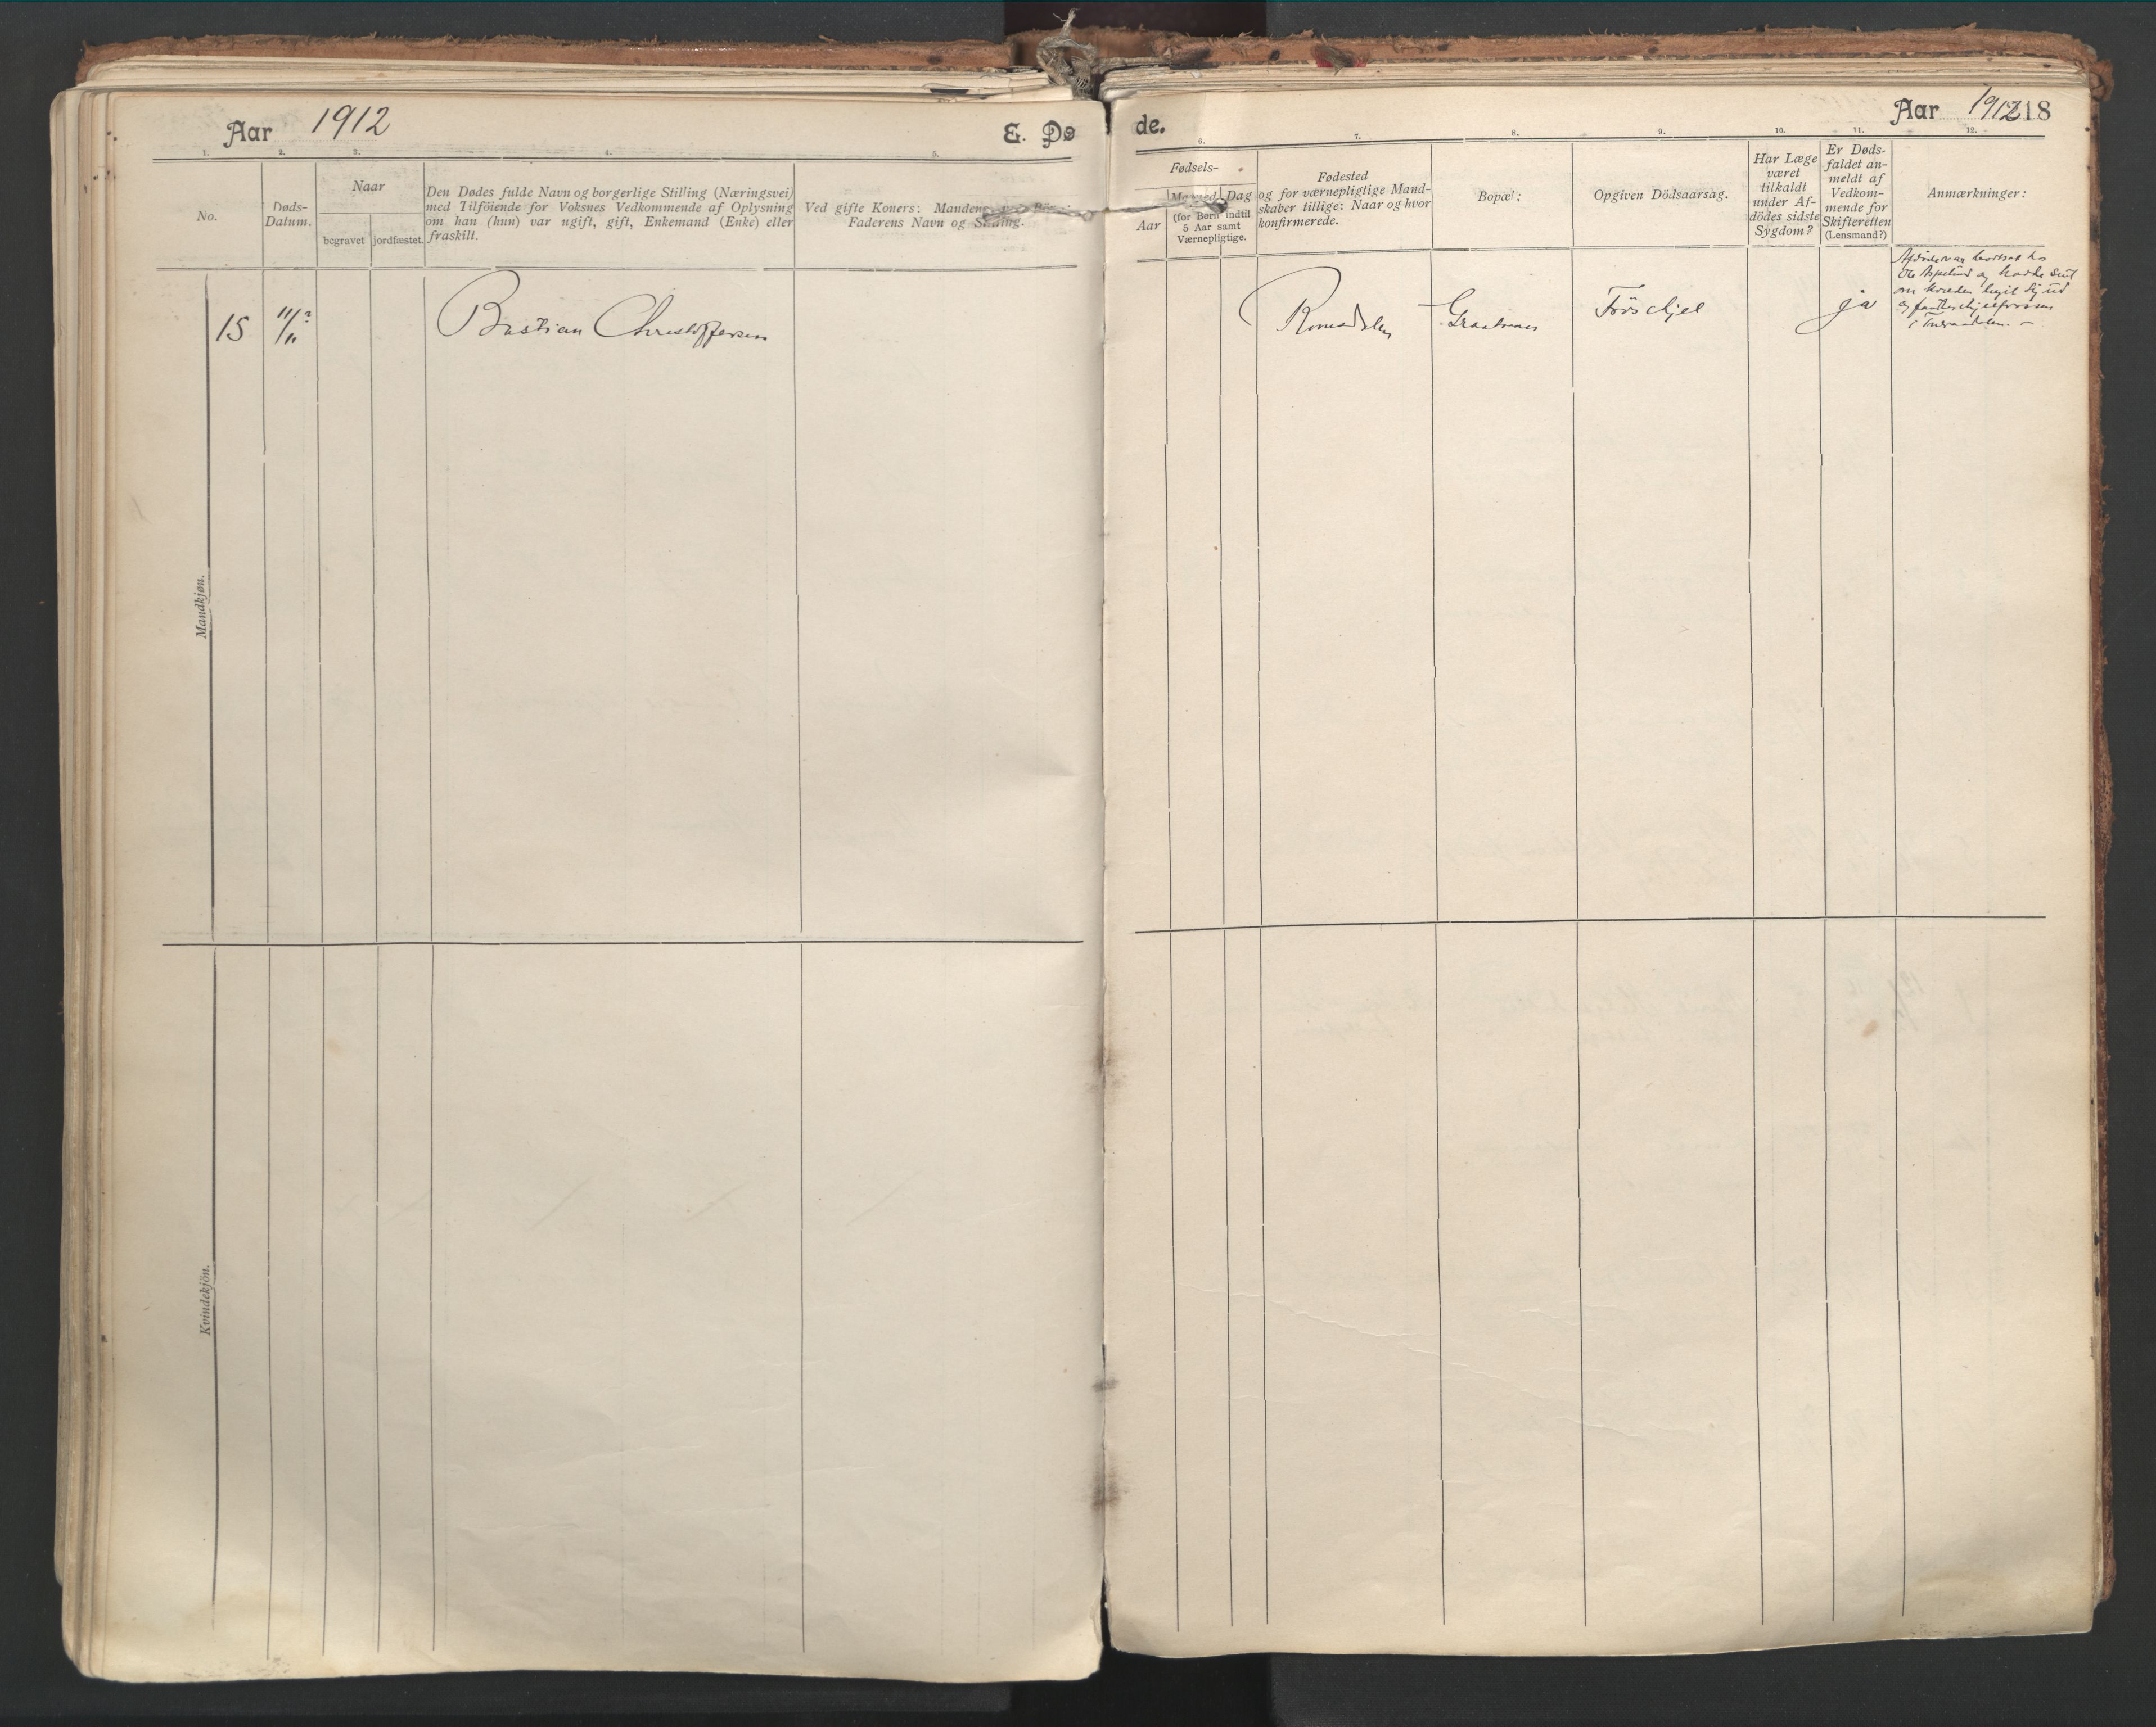 Aar 1912
E. Dø
de.
Aar 1912
218
1.
2.
3.
4.
5.
6.
7.
8.
9.
10.
11.
12.
No.
Døds-
Datum.
Naar
begravet
jordfæstet.
Den Dødes fulde Navn og borgerlige Stilling (Næringsvei)
med Tilföiende for Voksnes Vedkommende af Oplysning
om han (hun) var ugift, gift, Enkemand (Enke) eller
fraskilt.
Ved gifte Koners: Mandens,
Faderens Navn og Stilling.
Fødsels-
Aar
Maaned
Dag
(for Børn indtil
5 Aar samt
Værnepligtige.
Fødested
og for værnepligtige Mand-
skaber tillige: Naar og hvor
konfirmerede.
Bopæl:
Opgiven Dödsaarsag.
Har Læge
været
tilkaldt
under Af-
dödes sidste
Sygdom?
Er Døds-
faldet an-
meldt af
Vedkom-
mende for
Skifteretten
(Lensmand?)
Anmærkninger:
15
11/11 ?
Bastian Christoffersen
Romsdalen
Graatnes
Frös ihjel
ja
Afdøde var bortsat hos
og hadde sent
om kvelden begit sig ud
og fantes ihjelfrossen
i
Mandkjøn.
Kvindekjön.